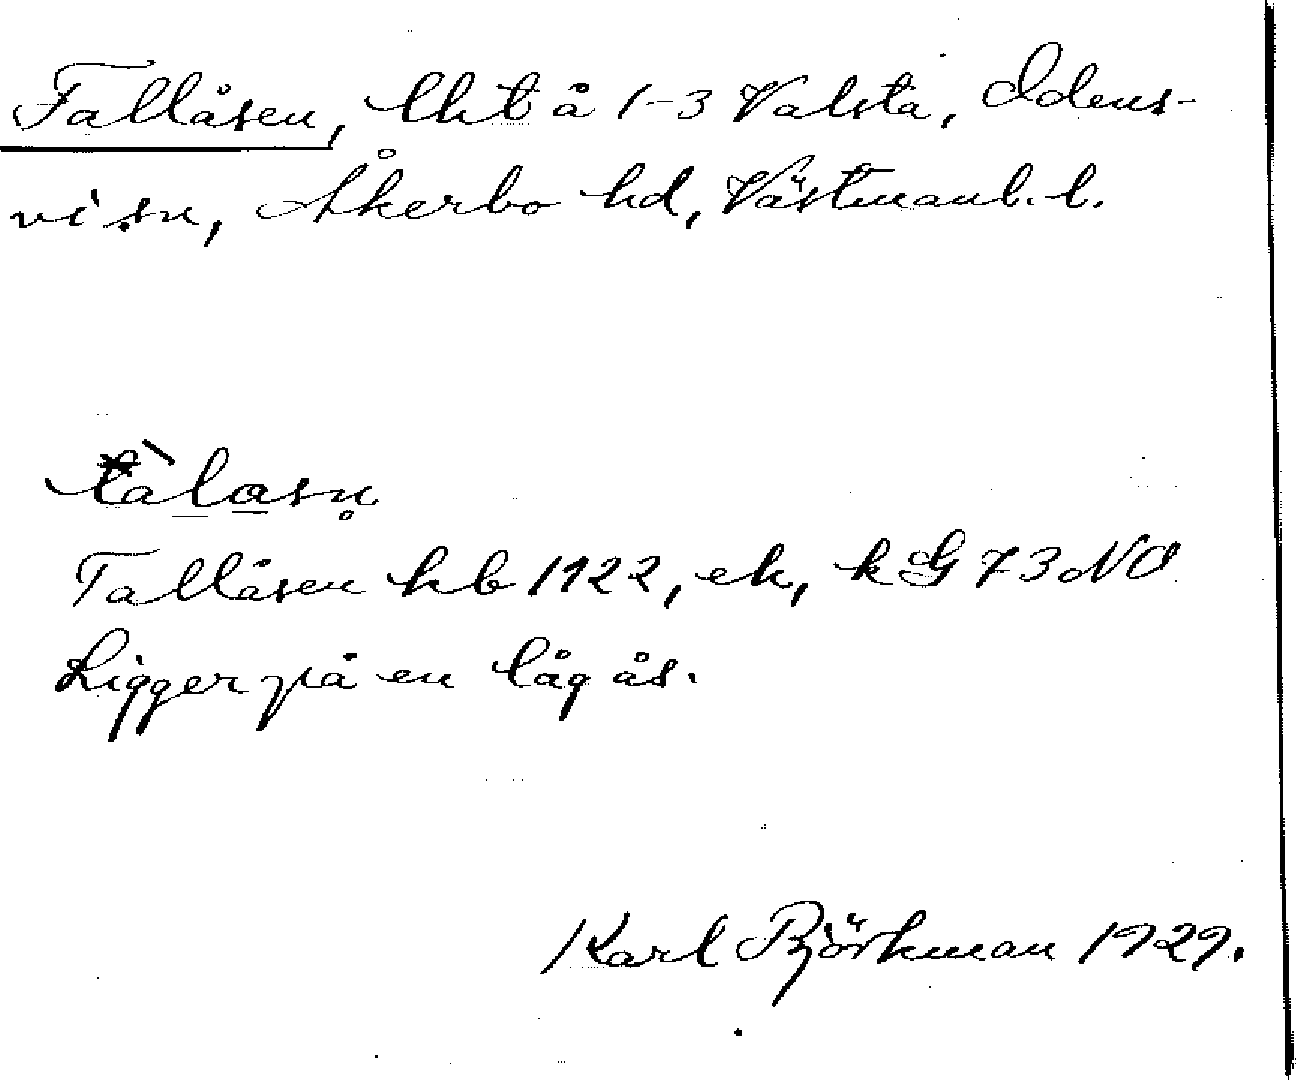 Tallåsen, lht å 1-3 Valsta, Odens-
vi sn, Åkerbo hd, Västmanl. l.
tàlasn̥
Tallåsen hb 1122, ek, k G 73 NO
Ligger på en låg ås.
Karl Björkman 1929.